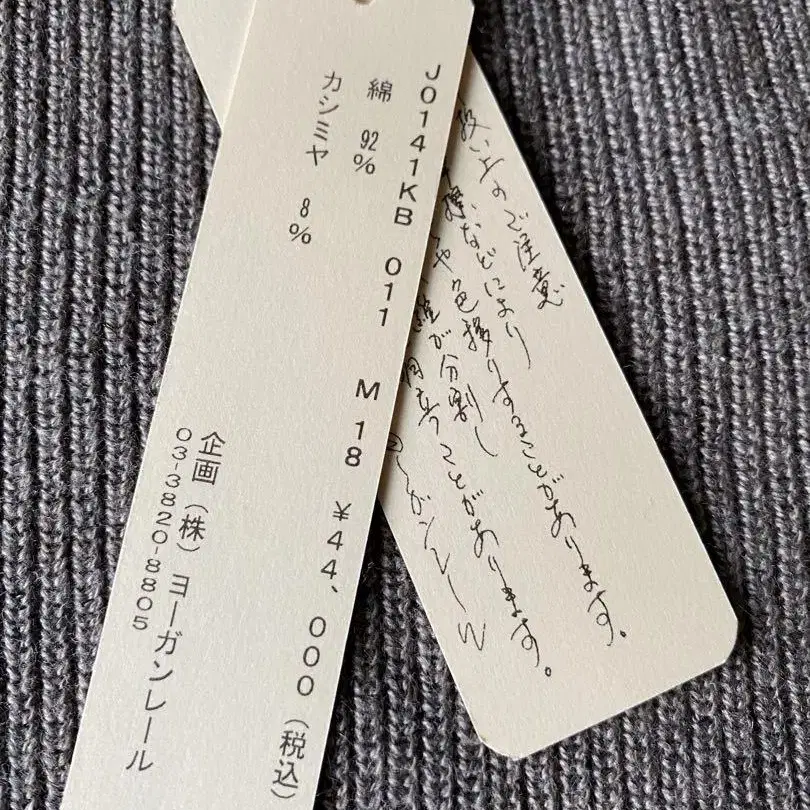 J0141KB 011 M 18 ¥44,000(税込)
綿 92%
カシミヤ 8%
企画(株)ヨーガンレール
03-3820-8805
扱い上のご注意
擦などにより
色移りすることがあります。
が分割し
ことがあります。
ヨーガンレール